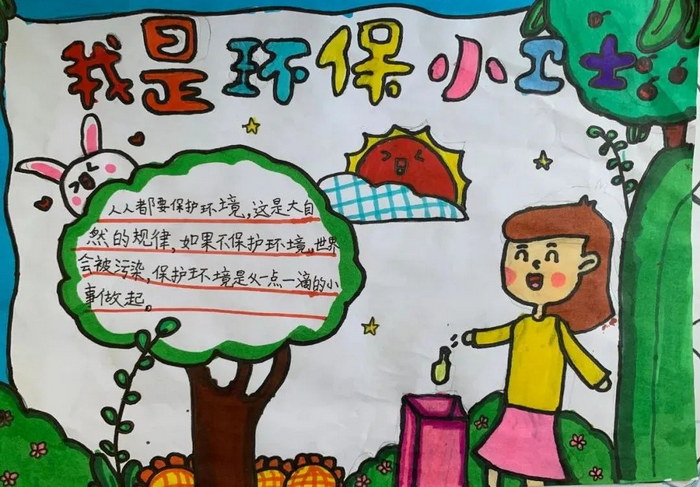 我是环保小卫士
人人都要保护环境,这是大自
然的规律,如果不保护环境,世界
会被污染,保护环境是从一点一滴的小
事做起。